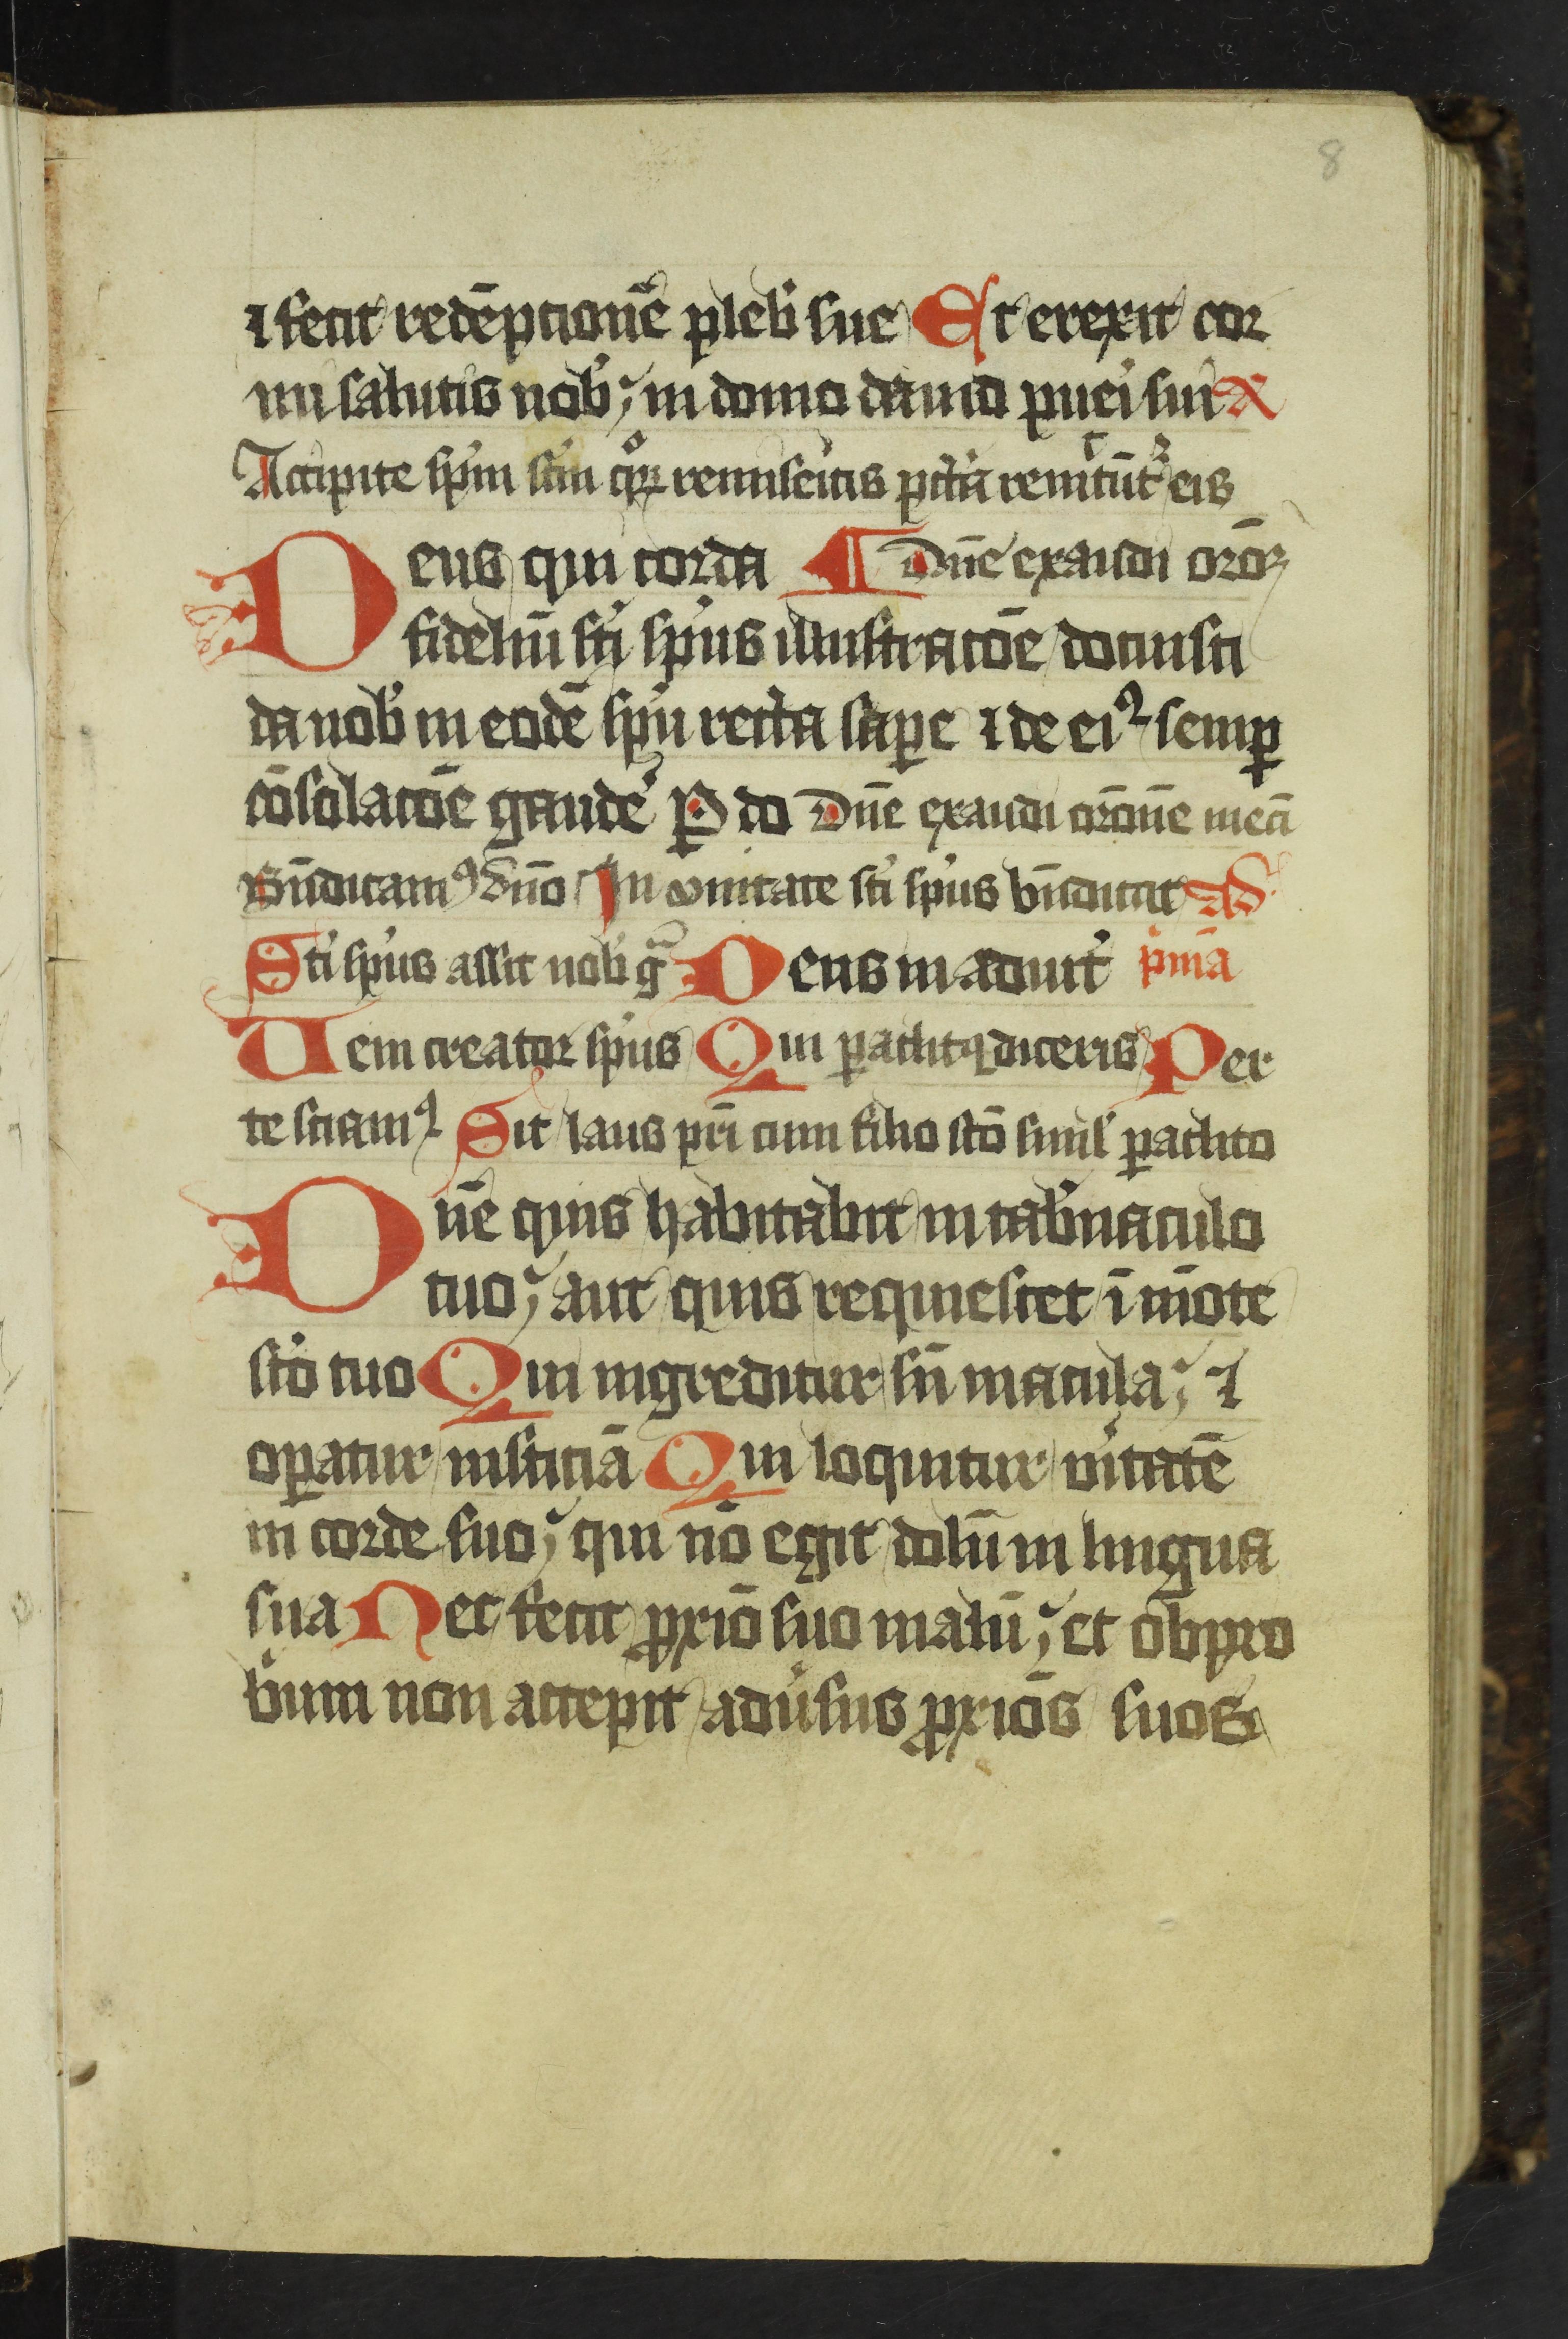 8
⁊ fecit redēpcionē pleb̉ sue Et erexit cor
nu salutis nob̉ ; in domo dauid pueͥ sui A
Accipite spm̄ stm̄ quoꝝ remiseͥtis pctā remittūt͛ eis
Deus qui corda ¶ Dn̄e exaudi oro͞ꝫ
fideliū sti̇ spu̇s illustracōe docuisti
da nob̉ in eodē spū recta saꝑe ⁊ de eiꝰ semꝑ
cōsolacōe gaudē P do Dn̄e exaudi orōnē meā
Bn̄dicamꝰ dn̄o In vnitate sti̇ spu̇s bn̄dicat Ad
Sti̇ spu̇s assit nob̉ gᷓ Deus in adiut̉ pͥmā
Ueni creator spu̇s Qui ꝑaclitꝰ diceris Per
te sciamꝰ Sit laus pr̄i cum filio stō simł ꝑaclito
Dn̄e quis habitabit in tab̉naculo
tuo ; aut quis requiescet ī mōte
stō tuo Qui ingreditur sn̄ macula ; ⁊
oꝑatur iusticiā Qui loquitur u̾itatē
in corde suo ; qui nō egit dolū in lingua
sua Nec fecit ꝓxiō suo malū ; et obpro
bͥum non accepit adu̾sus ꝓxiōs suos